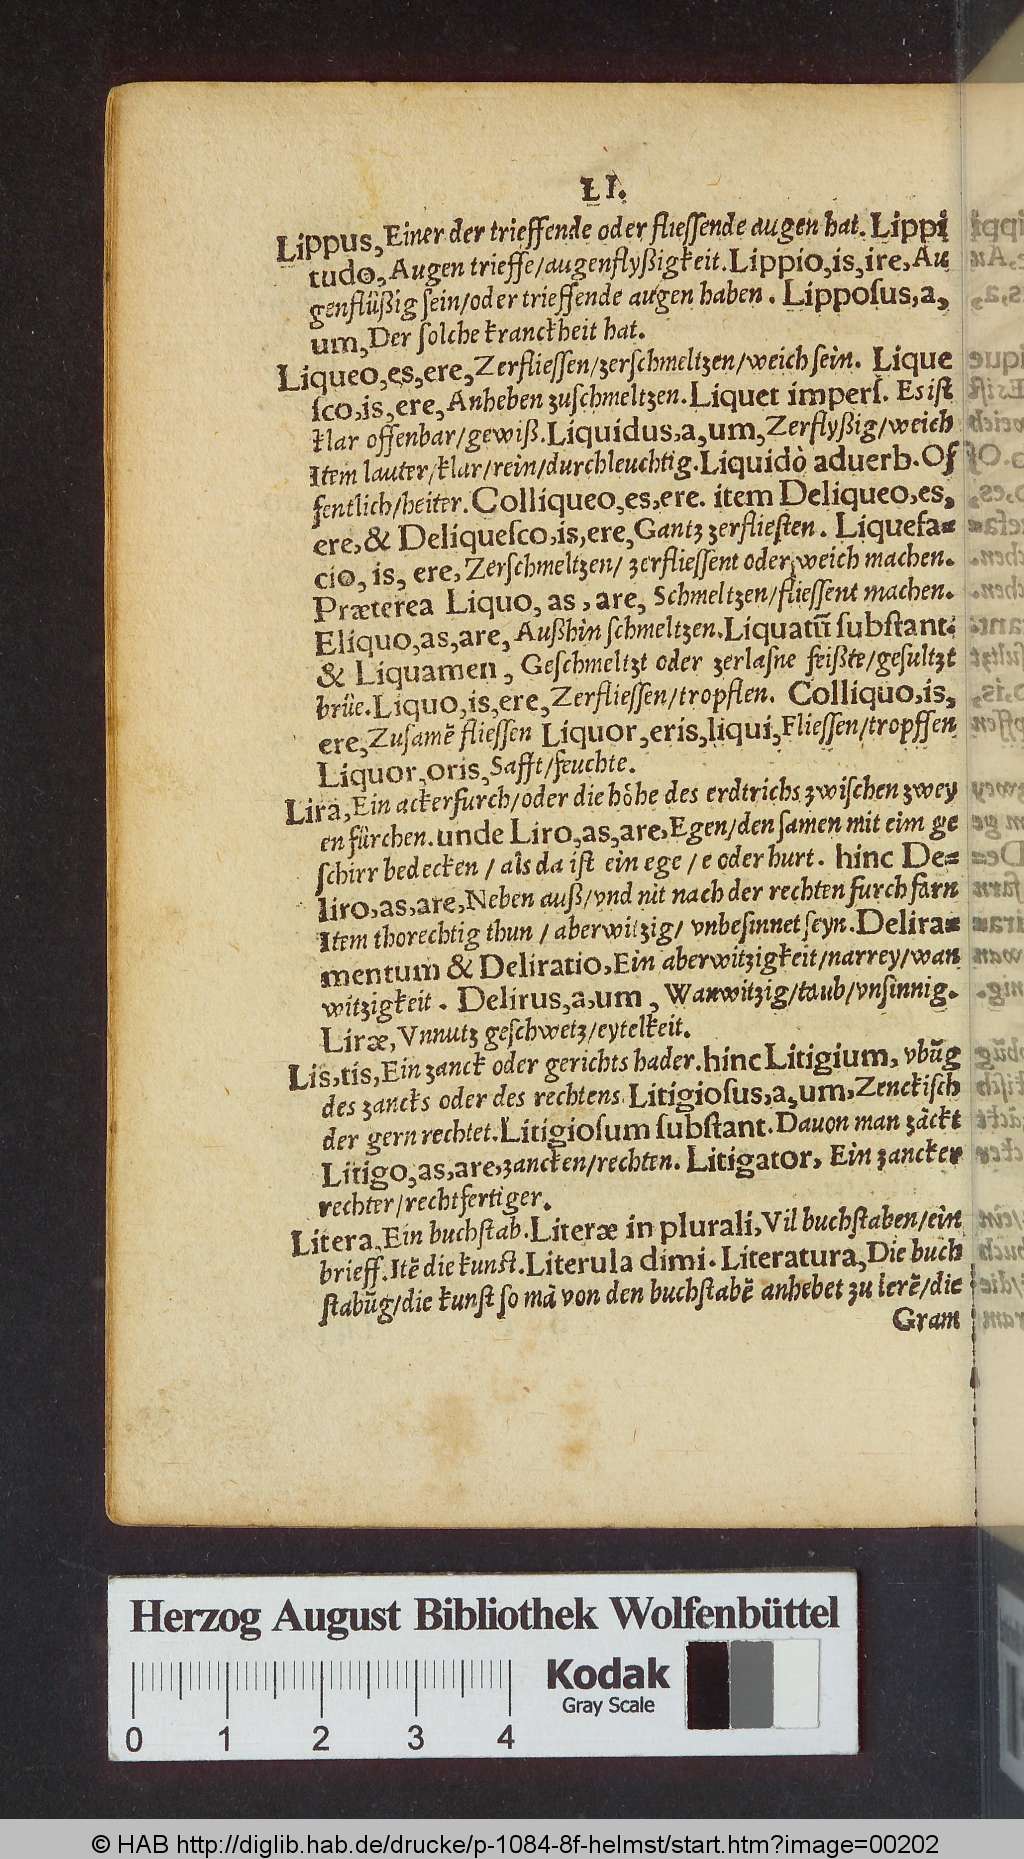 LI.
Lippus, Einer der trieffende oder fliessende augen hat. Lippi
tudo, Augen trieffe/augenflyßigkeit. Lippio, is, ire, Au
genflüßig sein/oder trieffende augen haben. Lipposus, a,
um, Der solche kranckheit hat.
Liqueo, es, ere, Zerfliessen/zerschmeltzen/weich sein. Lique
sco, is, ere, Anheben zuschmeltzen. Liquet impers. Es ist
klar offenbar/gewiß. Liquidus, a, um, Zerflyßig/weich
Item lauter/klar/rein/durchleuchtig. Liquidò aduerb. Of
fentlich/heiter. Colliqueo, es, ere. item Deliqueo, es,
ere, & Deliquesco, is, ere, Gantz zerfliesten. Liquefa=
cio, is, ere, Zerschmeltzen/ zerfliessent oder weich machen.
Præterea Liquo, as, are, Schmeltzen/fliessent machen.
Eliquo, as, are, Außhin schmeltzen. Liquatū substant.
& Liquamen, Geschmeltzt oder zerlasne feißte/gesultzt
brüe. Liquo, is, ere, Zerfliessen/tropflen. Colliquo, is,
ere, Zusamē fliessen Liquor, eris, liqui, Fliessen/tropffen
Liquor, oris, Safft/feuchte.
Lira, Ein ackerfurch/oder die höhe des erdtrichs zwischen zwey
en fürchen. unde Liro, as, are, Egen/den samen mit eim ge
schirr bedecken / als da ist ein ege / e oder hurt. hinc De=
liro, as, are, Neben auß/vnd nit nach der rechten furch farn
Item thorechtig thun / aberwitzig/ vnbesinnet seyn. Delira=
mentum & Deliratio, Ein aberwitzigkeit/narrey/wan
witzigkeit. Delirus, a, um, Wanwitzig/taub/vnsinnig.
Liræ, Vnnutz geschwetz/eytelkeit.
Lis, tis, Ein zanck oder gerichts hader. hinc Litigium, vbūg
des zancks oder des rechtens Litigiosus, a, um, Zenckisch
der gern rechtet. Litigiosum substant. Dauon man zäckt
Litigo, as, are, zancken/rechten. Litigator, Ein zancker
rechter/rechtfertiger.
Litera, Ein buchstab. Literæ in plurali, Vil buchstaben/ein
brieff. Itē die kunst. Literula dimi. Literatura, Die buch
stabūg/die kunst so mā von den buchstabē anhebet zu lerē/die
Gram
Herzog August Bibliothek Wolfenbüttel
Kodak
Gray Scale
0 1 2 3 4
© HAB http://diglib.hab.de/drucke/p-1084-8f-helmst/start.htm?image=00202